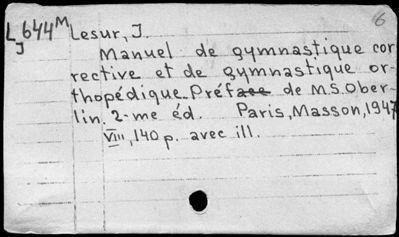 6
L 644M Lesur, J.
J
Manuel de gymnastique cor
rective et de gymnastique or-
thopédique. Préface de M.S. Ober-
lin. 2-me éd. Paris, Masson, 1947
VIII, 140 p. avec ill.